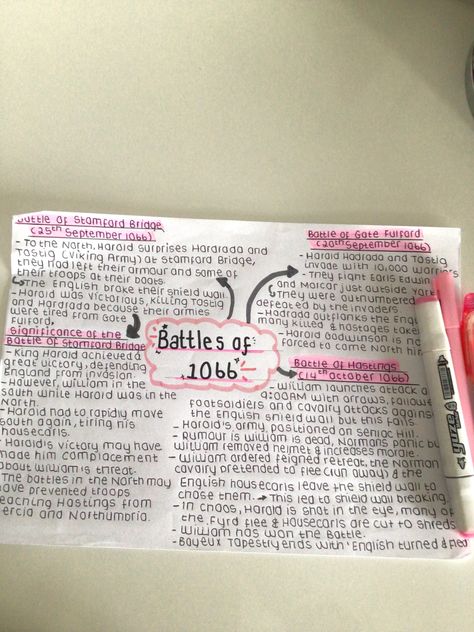 Battle of Stamford Bridge
(25th September 1066)
- To the North, Harald surprises Hardrada and
Tostig (Viking Army) at Stamford Bridge,
they had left their armour and some of
their troops at the boats.
↳ The English brake their shield wall
- Harold was victorious, killing Tostig
and Hardrada because their armies
were tired from Gate
Fulford.
Significance of the
Battle of Stamford Bridge
- King Harold achieved a
great victory, defending
England from invasion.
- However, William in the
south while Harold was in the
North.
- Harold had to rapidly move
south again, tiring his
housecarls.
- Harold's victory may have
made him complacement
about William's threat.
- The battles in the North may
have prevented troops
reaching Hastings from
Mercia and Northumbria.
Battles of
1066
Battle of Gate Fulford
(20th September 1066)
- Harald Hadrada and Tostig
invade with 10,000 warriors
- They fight Earls Edwin
and Morcar, just outside York
- They were outnumbered
defeated by the invaders.
- Hadrada outflanks the English
many killed & hostages taken
- Harold Godwinson is no
forced to come North him
Battle of Hastings
(14th October 1066)
- William launches attack a
9:00AM with arrows, followe
footsoldiers and cavalry attacks against
the English shield wall but this fails.
- Harold's army, positioned on Senlac Hill.
- Rumour is William is dead, Normans panic bu
William removed helmet & increases morale.
- William ordered feigned retreat, the Norman
cavalry pretended to flee (run away) & the
English housecarls leave the shield wall to
chase them. → This led to shield wall breaking
- In chaos, Harold is shot in the eye, many of
the Fyrd flee & Housecarls are cut to shreds
- William has won the battle.
- Bayeux Tapestry ends with 'English turned & fled